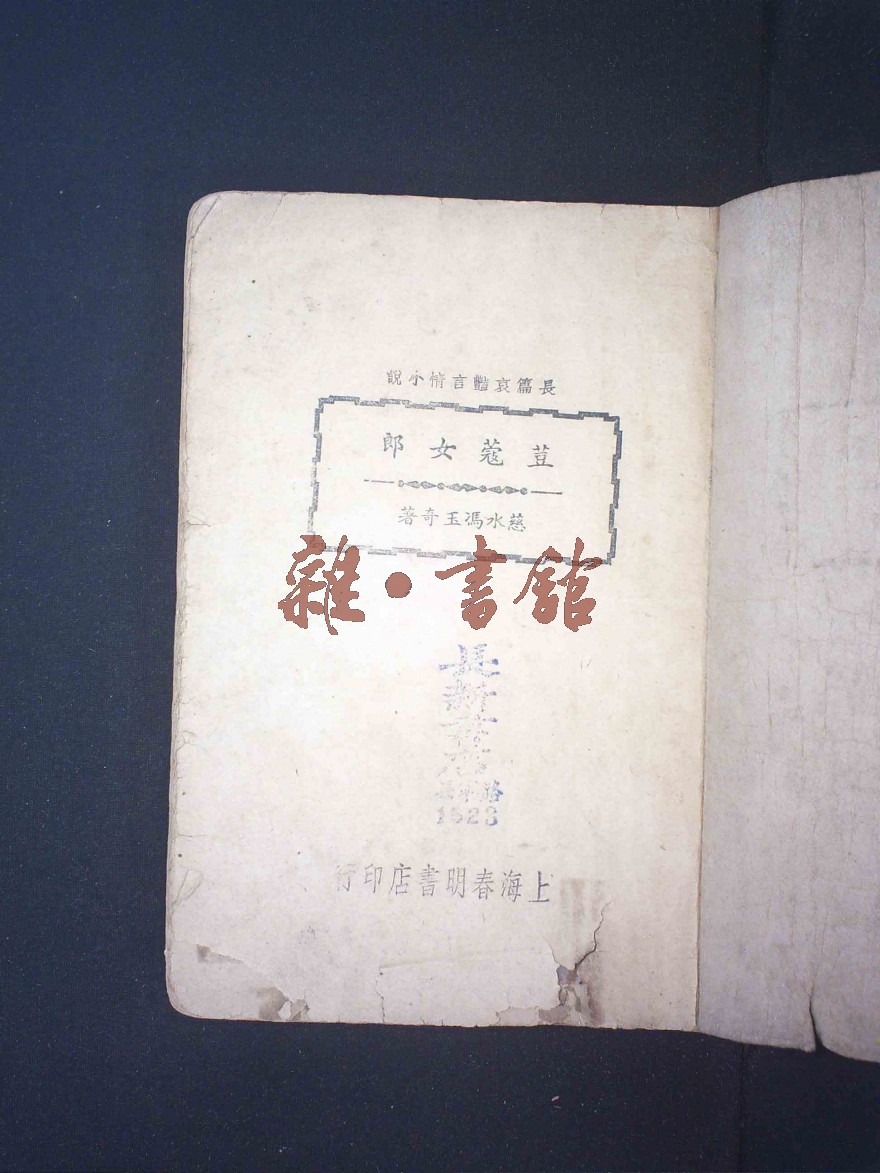 長篇哀豔言情小說
荳蔻女郎
慈水馮玉奇著
雜·書館
長新書店
路
1623
上海春明書店印行